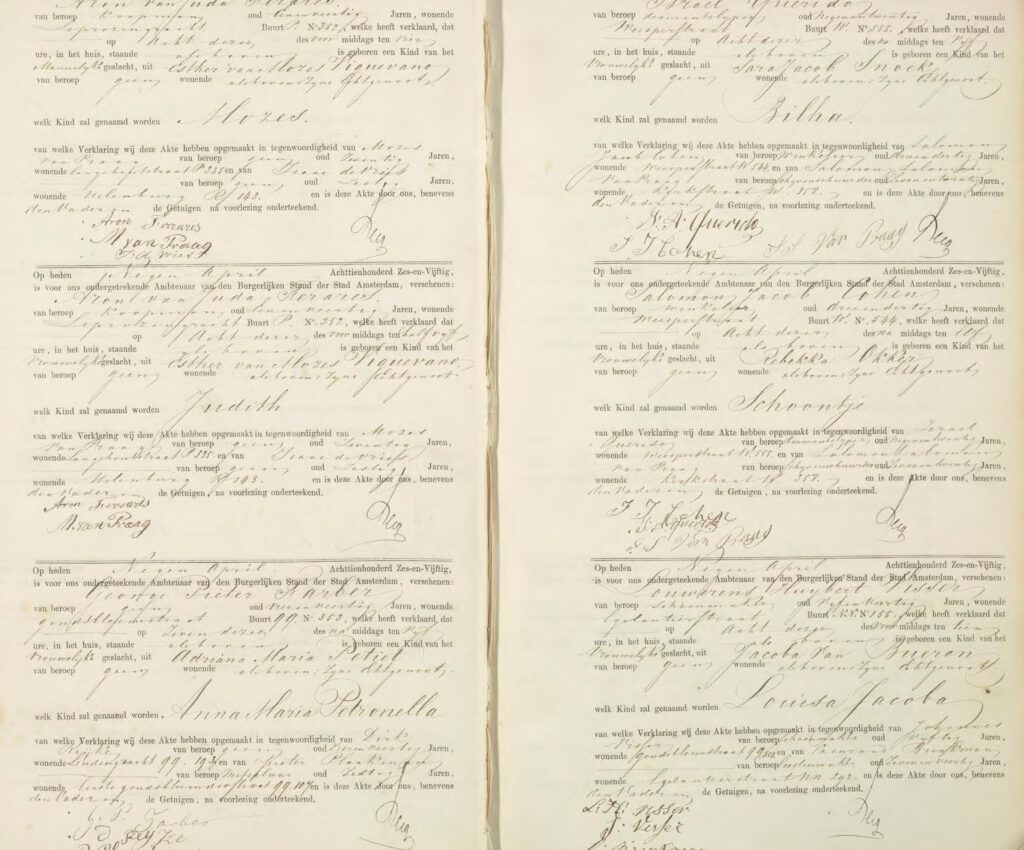 Aron van Juda Ferares.
van beroep Koopman oud een en veertig Jaren, wonende
Leprozengracht Buurt P. No. 352, welke heeft verklaard dat
op Acht dezer des voor middags ten vier
ure, in het huis, staande als boven is geboren een Kind van het
Mannelijke geslacht, uit Esther van Mozes Piquevano
van beroep geen wonende als boven: Zyne Echtgenoot
welk Kind zal genaamd worden Mozes.
van welke Verklaring wij deze Akte hebben opgemaakt in tegenwoordigheid van Mozes
van Praag van beroep geen oud Zeventig Jaren,
wonende P 335 en van Isaac de Vries
van beroep geen oud Zestig Jaren,
wonende Uilenburg R 143. en is deze Akte door ons, benevens
den Vader en de Getuigen, na voorlezing onderteekend.
Aron Ferrares
M van Praag
I de Vries
Op heden Negen April Achttienhonderd Zes-en-Vijftig,
is voor ons ondergeteekende Ambtenaar van den Burgerlijken Stand der Stad Amsterdam, verschenen:
Aron van Juda Ferares.
van beroep Koopman oud een en veertig Jaren, wonende
Leprozengracht Buurt P. No. 352, welke heeft verklaard dat
op Acht dezer des voor middags ten half vyf
ure, in het huis, staande als boven is geboren een Kind van het
Vrouwelijke geslacht, uit Esther van Mozes Piquevano
van beroep geen wonende als boven: Zyne Echtgenoot.
welk Kind zal genaamd worden Judith
van welke Verklaring wij deze Akte hebben opgemaakt in tegenwoordigheid van Mozes
van Praag van beroep geen oud Zeventig Jaren,
wonende P 335. en van Isaac de Vries
van beroep geen oud Zestig Jaren,
wonende Uilenburg R 143. en is deze Akte door ons, benevens
den Vader en de Getuigen, na voorlezing onderteekend.
Aron Ferrares
M. van Praag
Op heden Negen April Achttienhonderd Zes-en-Vijftig,
is voor ons ondergeteekende Ambtenaar van den Burgerlijken Stand der Stad Amsterdam, verschenen:
George Pieter Farber
van beroep geen oud vier en veertig Jaren, wonende
goudsbloemstraat Buurt 99. No. 353, welke heeft verklaard dat
op Zeven dezer des na middags ten Vyf
ure, in het huis, staande als boven is geboren een Kind van het
Vrouwelijke geslacht, uit Adriana Maria Petiet
van beroep geen wonende als boven: Zyne Echtgenoot.
welk Kind zal genaamd worden Anna Maria Petronella
van welke Verklaring wij deze Akte hebben opgemaakt in tegenwoordigheid van Dirk
van beroep geen oud Jaren,
wonende 99. 193 en van Pieter Plankman
van beroep Metselaar oud Zestig Jaren,
wonende 99. 107 en is deze Akte door ons, benevens
den Vader en de Getuigen, na voorlezing onderteekend.
G. P. Farber
Israel Querido
van beroep diamantslyper oud Negen en twintig Jaren, wonende
Weesperstraat Buurt W. No. 555. welke heeft verklaard dat
op Acht dezer des na middags ten Vyf
ure, in het huis, staande als boven is geboren een Kind van het
Vrouwelijke geslacht, uit Sara Jacob Snoek
van beroep geen wonende als boven: Zyne Echtgenoot
welk Kind zal genaamd worden Bilha.
van welke Verklaring wij deze Akte hebben opgemaakt in tegenwoordigheid van Salomon
Jacob Cohen van beroep Winkelier oud drie en dertig Jaren,
wonende Weesperstraat W. 544 en van Salomon Salomon
van Praag van beroep oud Zeven en twintig Jaren,
wonende Kerkstraat W. 352. en is deze Akte door ons, benevens
den Vader en de Getuigen, na voorlezing onderteekend.
I. A. Querido
S J Cohen S S Van Praag
Op heden Negen April Achttienhonderd Zes-en-Vijftig,
is voor ons ondergeteekende Ambtenaar van den Burgerlijken Stand der Stad Amsterdam, verschenen:
Salomon Jacob Cohen
van beroep Winkelier oud drie en dertig Jaren, wonende
Weesperstraat Buurt W. No. 544. welke heeft verklaard dat
op Acht dezer des na middags ten Elf
ure, in het huis, staande als boven is geboren een Kind van het
Vrouwelijke geslacht, uit Rebekka Okker
van beroep geen wonende als boven: Zyne Echtgenoot
welk Kind zal genaamd worden Schoontje
van welke Verklaring wij deze Akte hebben opgemaakt in tegenwoordigheid van Israel
Querido van beroep diamantslyper oud Negen en twintig Jaren,
wonende Weesperstraat W. 555. en van Salomon Salomon
van Praag van beroep oud Zeven en twintig Jaren,
wonende Kerkstraat W. 352. en is deze Akte door ons, benevens
den Vader en de Getuigen, na voorlezing onderteekend.
S J Cohen
I. A. Querido
S S Van Praag
Op heden Negen April Achttienhonderd Zes-en-Vijftig,
is voor ons ondergeteekende Ambtenaar van den Burgerlijken Stand der Stad Amsterdam, verschenen:
Louwerens Huybert Visser
van beroep Schoenmaker oud Jaren, wonende
Egelantierstraat Buurt N.N. No. 155. welke heeft verklaard dat
op Acht dezer des voor middags ten tien
ure, in het huis, staande als boven is geboren een Kind van het
Vrouwelijke geslacht, uit Jacoba Van Bueren
van beroep geen wonende als boven: Zyne Echtgenoot
welk Kind zal genaamd worden Louisa Jacoba
van welke Verklaring wij deze Akte hebben opgemaakt in tegenwoordigheid van Johannes
Visser van beroep Schoenmaker oud Jaren,
wonende goudsbloemstraat 99 en van Brinkman
van beroep oud Jaren,
wonende Egelantierstraat NN 292. en is deze Akte door ons, benevens
den Vader en de Getuigen, na voorlezing onderteekend.
L. H. Visser
J: Visser